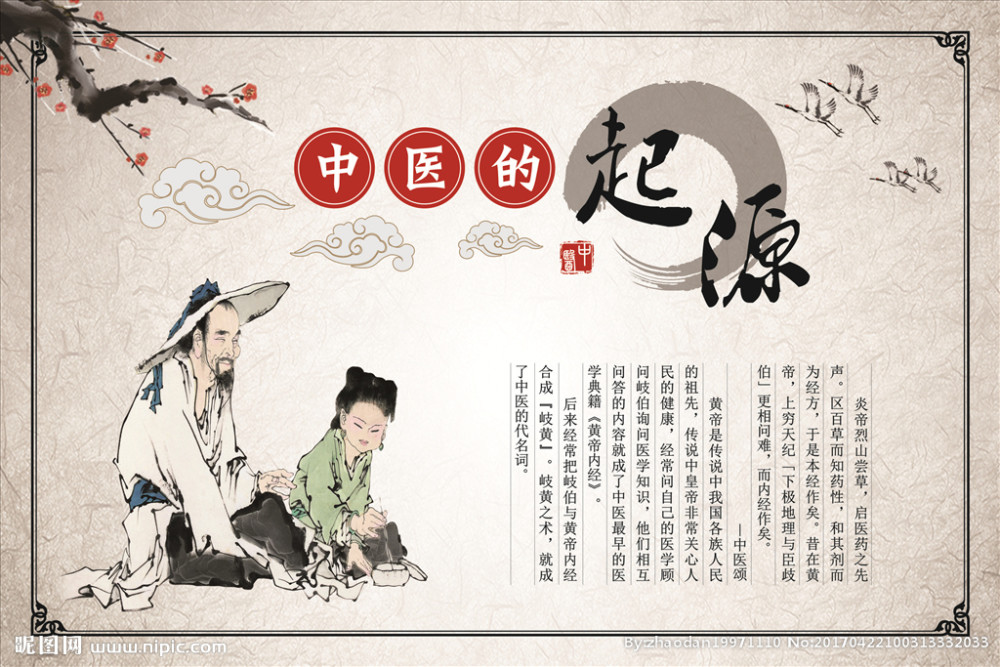 中医的
起源
中醫
炎帝烈山尝草，启医药之先
声。区百草而知药性，和其剂而
为经方，于是本经作矣。昔在黄
帝，上穷天纪「下极地理与臣歧
伯」更相问难，而内经作矣。
—中医颂
黄帝是传说中我国各族人民
的祖先，传说中皇帝非常关心人
民的健康，经常问自己的医学顾
问岐伯询问医学知识，他们相互
问答的内容就成了中医最早的医
学典籍《黄帝内经》。
后来经常把岐伯与黄帝内经
合成『岐黄』。岐黄之术，就成
了中医的代名词。
昵图网 www.nipic.com
By:zhaodan19971110 No:20170422100313332033